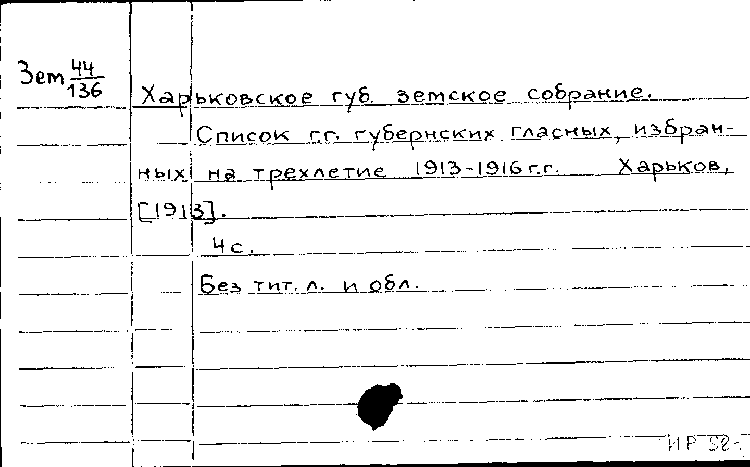 Зем 44/136
Харьковское губ. земское собрание.
Список г.г. губернских гласных, избран-
ных на трехлетие 1913-1916 г.г. Харьков,
[1913].
4 с.
Без тит. л. и обл.